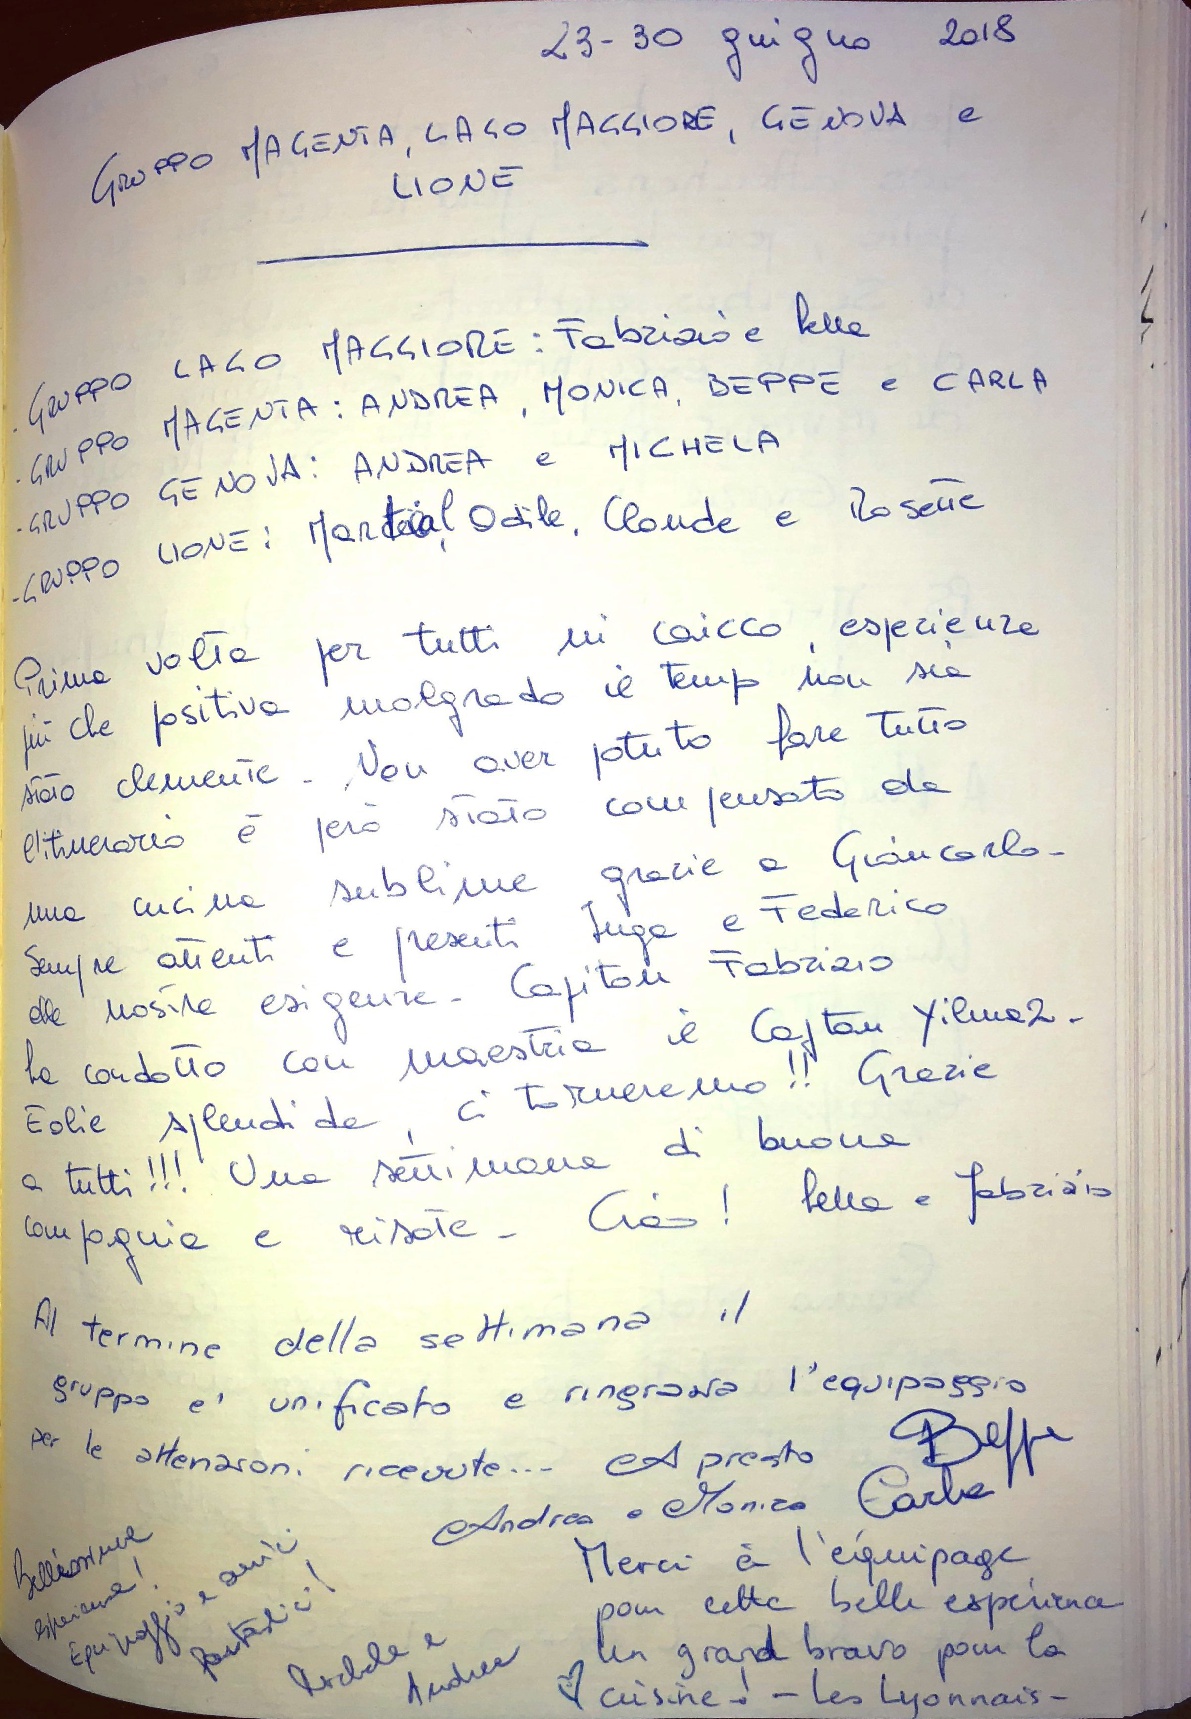 23-30 giugno 2018
GRUPPO MAGENTA, LAGO MAGGIORE, GENOVA e
LIONE
- GRUPPO LAGO MAGGIORE: Fabrizio e Lella
- GRUPPO MAGENTA: ANDREA, MONICA, BEPPE e CARLA
- GRUPPO GENOVA: ANDREA e MICHELA
- GRUPPO LIONE: Martial, Odile, Claude e Rosette
Prima volta per tutti in caicco, esperienza
più che positiva malgrado il temp non sia
stato clemente. Non aver potuto fare tutto
l'itinerario è però stato compensato da
una cucina sublime grazie a Giancarlo.
Sempre attenti e presenti Inga e Federico
alle nostre esigenze. Capitan Fabrizio
ha condotto con maestria il Captan Yilmaz.
Eolie splendide, ci torneremo!! Grazie
a tutti!!! Una settimana di buona
compagnia e risate. Ciao! Lella e Fabrizio
Al termine della settimana il
gruppo e' unificato e ringrazia l'equipaggio
per le attenzioni ricevute... A presto Beppe
Andrea e Monica Carla
Bellissima
esperienza!
Equipaggio e amici
fantastici!
Michela e
Andrea
Merci à l'équipage
pour cette belle expérience
Un grand bravo pour la
cuisine! - Les Lyonnais -